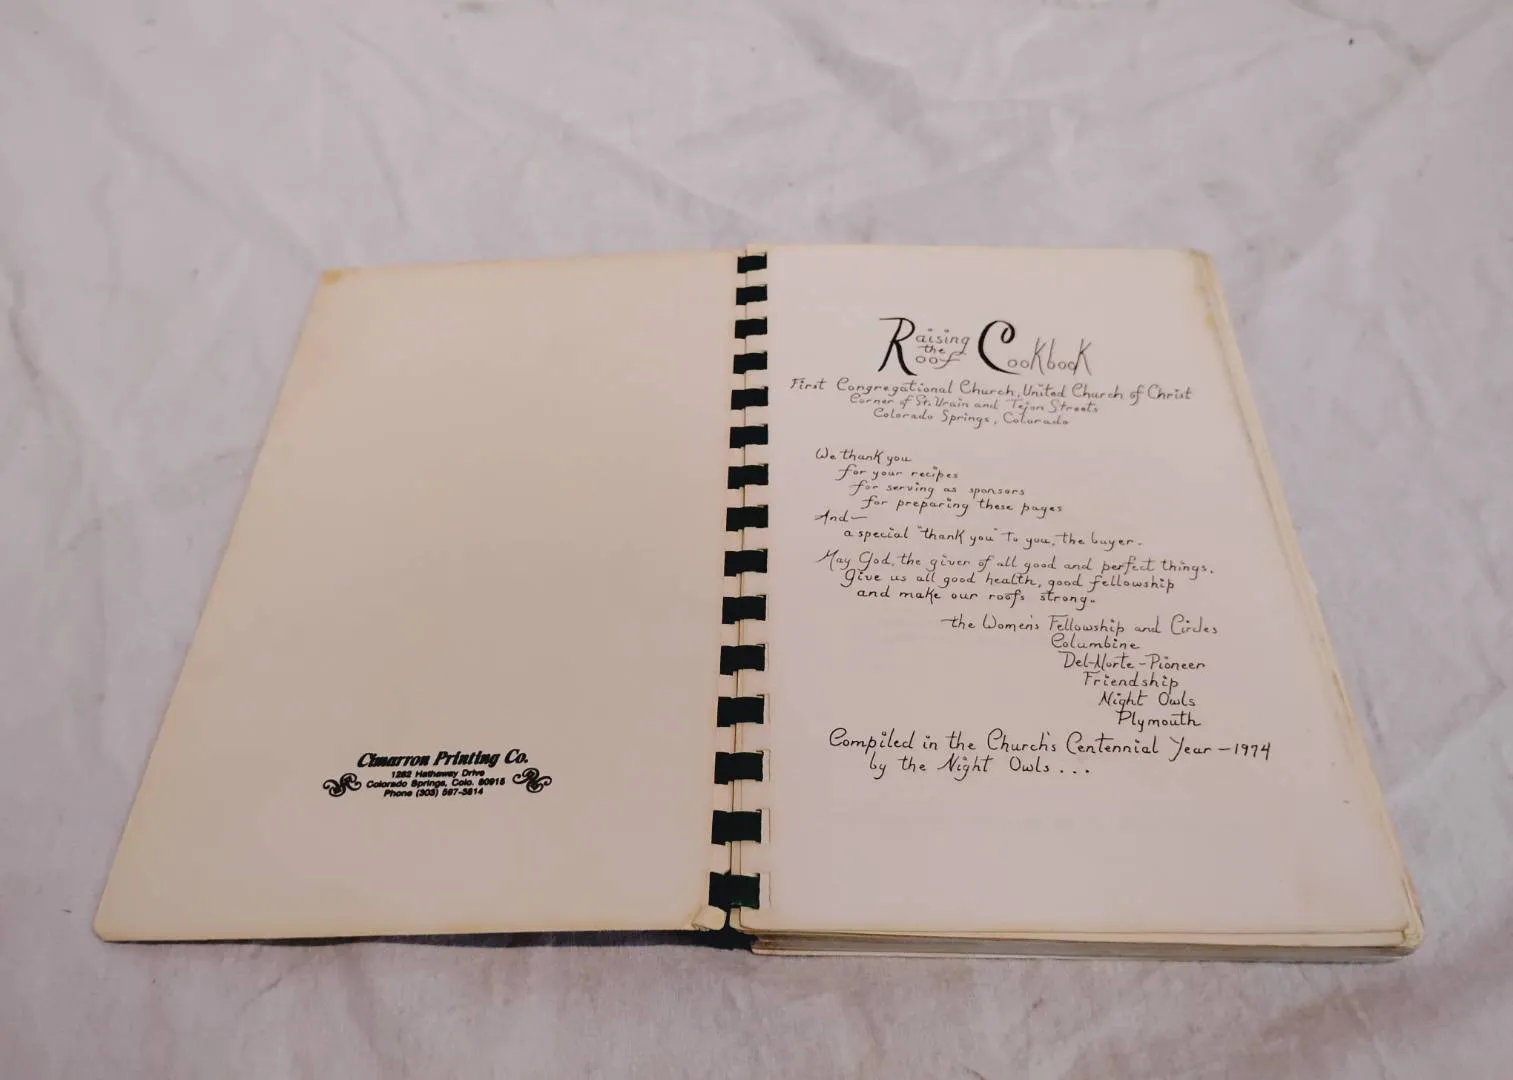 Cimarron Printing Co.
1282 Hathaway Drive
Colorado Springs, Colo. 80915
Phone (303) 597-3614
Raising the Roof Cookbook
First Congregational Church, United Church of Christ
Corner of St. Vrain and Tejon Streets
Colorado Springs, Colorado
We thank you
for your recipes
for serving as sponsors
for preparing these pages
And—
a special "thank you" to you, the buyer.
May God, the giver of all good and perfect things,
Give us all good health, good fellowship
and make our roofs strong.
the Women's Fellowship and Circles
Columbine
Del-Norte-Pioneer
Friendship
Night Owls
Plymouth
Compiled in the Church's Centennial Year — 1974
by the Night Owls ...